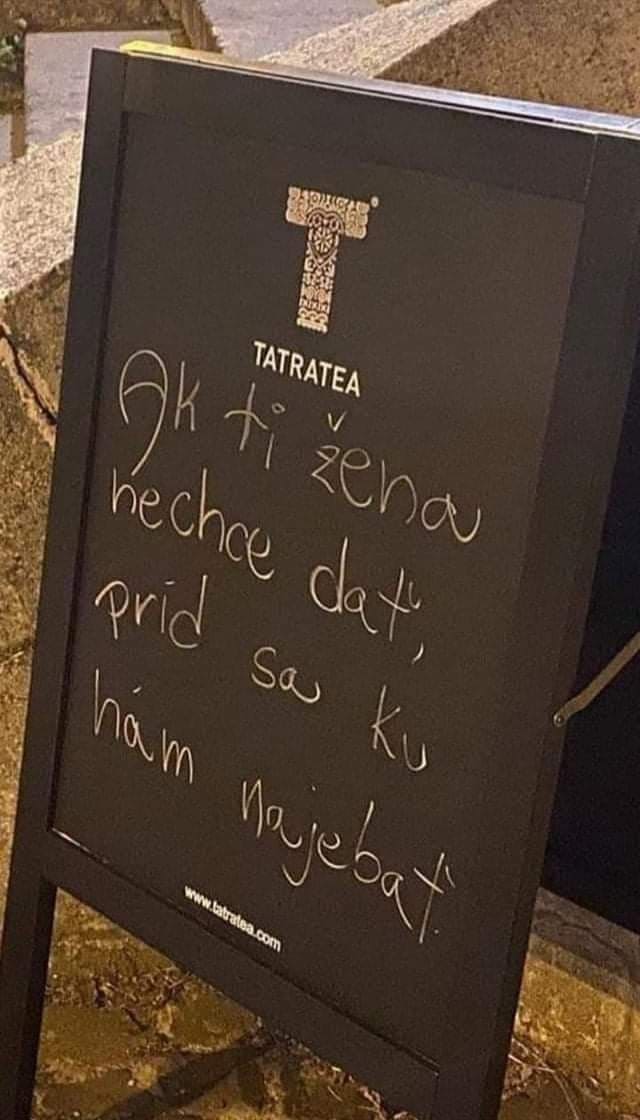 T®
TATRATEA
Ak ti žena
nechce dať,
príd sa ku
nám najebať
www.tatratea.com